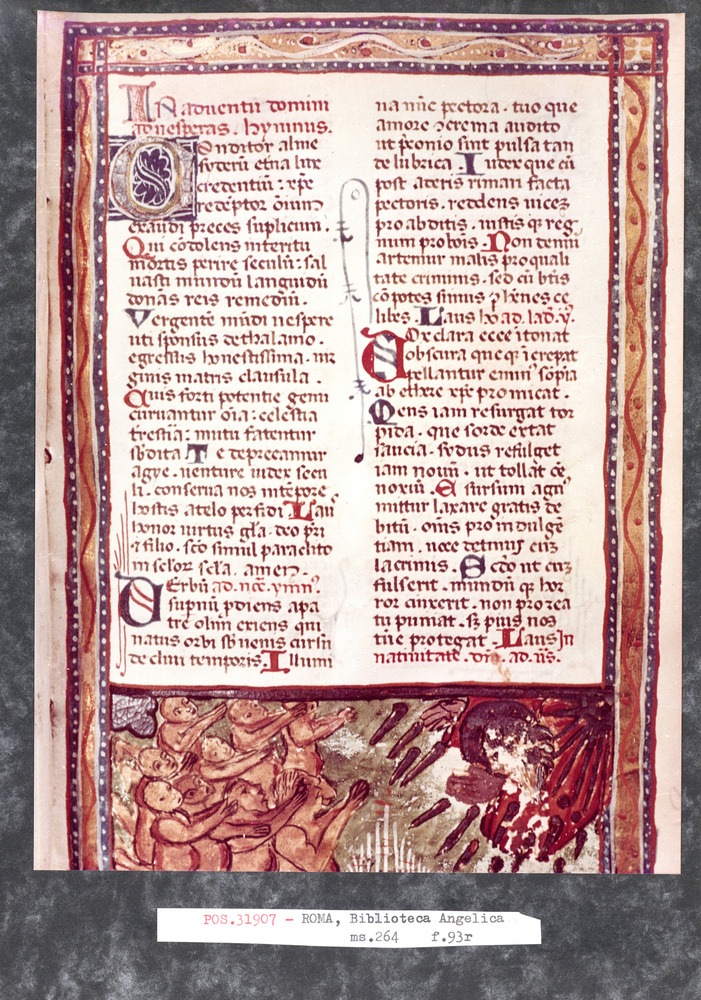 In aduentu domini
ad uesperas. hymnus.
Conditor alme
syderu etna lux
credentiu: xpe
redeptor oium
exaudi preces suplicum.
Qui codolens interitu
mortis perire seculu: sal
uasti mundu languidu
donans reis remediu.
Vergente mudi uespere
uti sponsus de thalamo.
egressus honestissima. uir
ginis matris clausula.
Cuius forti potentie genu
curuantur oia: celestia
trestia: nutu fatentur
sbdita Te deprecamur
agye. uenture iudex secu
li. conserua nos intepore
hostis a telo perfidi. Laus
honor uirtus gla. deo pri
& filio. sco simul paraclito
in selor scla. amen.
Verbu ad. noc. ymn.
supnu pdiens a pa
tre olim exiens qui
natus orbi sbuenis cursu
decliui temporis. Illumi
na nuc pectora. tuo que
amore ocrema audito
ut pconio sint pulsa tan
de lubrica Iudex que cu
post aderis rimari facta
pectoris. reddens uicez
pro abditis. iustis q reg
num pro bois. Non demu
artemur malis pro quali
tate criminis. sed cu btis
copotes simus phenes ce
libes. Laus ho ad. lad. y.
Vox clara ecce itonat
obscura queq icrepat
pellantur eminus sopia
ab ethere xpe promicat.
Mens iam resurgat tor
pida. que sorde extat
saucia. sydus refulget
iam nouu. ut tollat oe
noxiu. E sursum agn
mittur laxare gratis de
bitu. omis pro indulge
tiam. uoce demus cuz
lacrimis. Secdo ut cuz
fulserit. mundu q hor
ror cinxerit. non pro rea
tu puniat. sz pius nos
tuc protegat. Laus In
natiuitate. dni. ad. us.
POS.31907 - ROMA, Biblioteca Angelica
ms.264 f.93r